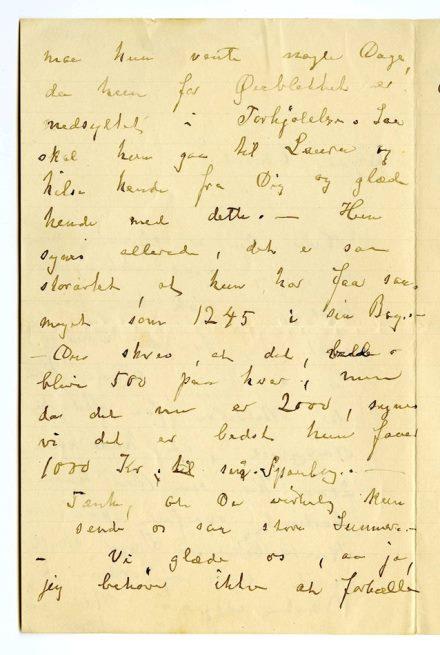 maa hun vente nogle Dage,
da hun for Øieblikket er
nedsyltet i Forkjølelse. Saa
skal hun gaa til Laura og
hilse hende fra Dig og glæde
hende med dette. — Hun
synes allerede, det er saa
storartet, at hun har faa saa
meget som 1245 i sin Bog. —
— Du skrev, at det, o
blive 500 paa hver, men
da det nu er 2000, synes
vi det er bedst hun faaer
1000 Kr. til sin Sparebog. —
Tænk, at De virkelig kan
sende os saa store Summer. —
— Vi glæde os, aa ja,
jeg behøver ikke at fortælle